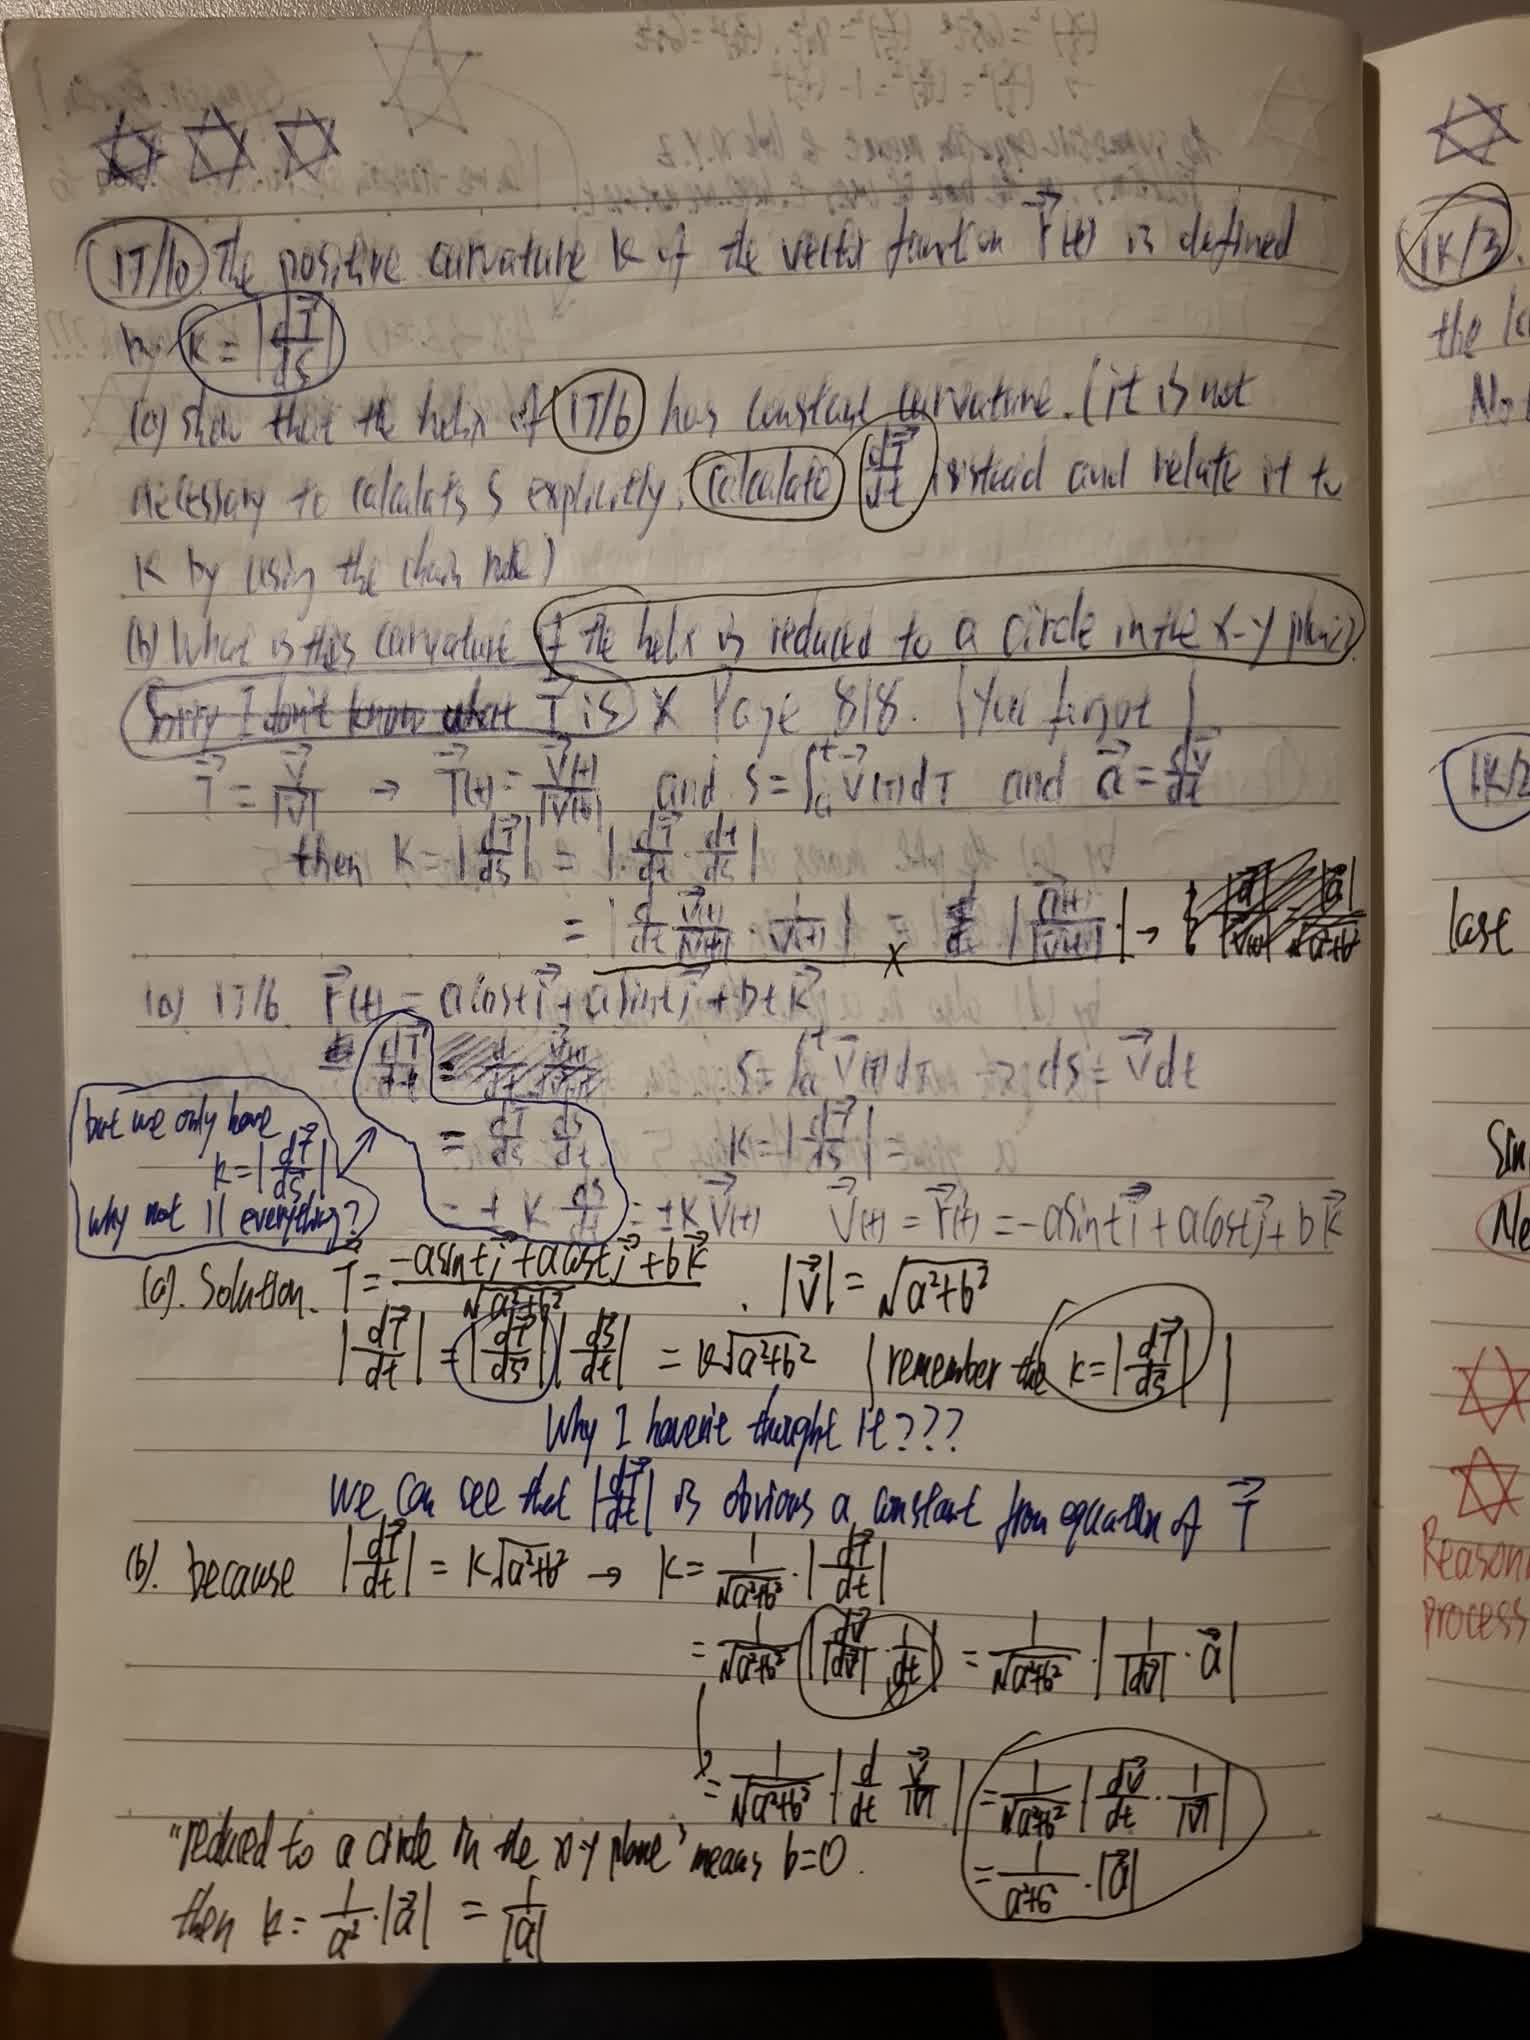 1J/10. The positive curvature K of the vector function r⃗(t) is defined
by K = |dT⃗/ds|
(a) show that the helix of 1J/6 has constant curvature. (it is not
necessary to calculate s explicitly. calculate dT⃗/dt instead and relate it to
K by using the chain rule)
(b) What is this curvature if the helix is reduced to a circle in the x-y plane?
Sorry I don't know what T⃗ is X Page 818. (You forgot)
T⃗ = v⃗/|v| → T⃗(t) = v⃗(t)/|v(t)| and s = ∫ₐᵗ v⃗(τ)dτ and a⃗ = dv⃗/dt
then K = |dT⃗/ds| = |dT⃗/dt · dt/ds|
= |d/dt v⃗(t)/|v(t)| · 1/v(t)| = |a⃗(t)/|v(t)|| →
X
(a) 1J/6. r⃗(t) = acost i⃗ + asint j⃗ + bt k⃗
dT⃗/dt = s = ∫ₐᵗ v⃗(τ)dτ → ds = v⃗dt
but we only have
k = |dT⃗/ds|
why not || everything?
= dT⃗/ds ds/dt K = |dT⃗/ds| =
= ± K ds/dt = ±K v⃗(t) v⃗(t) = r⃗(t) = -asint i⃗ + acost j⃗ + b k⃗
(a). Solution. T⃗ = (-asint i⃗ + acost j⃗ + b k⃗)/√(a²+b²) . |v⃗| = √(a²+b²)
|dT⃗/dt| = |dT⃗/ds| |ds⃗/dt| = k√(a²+b²) (remember the k = |dT⃗/ds|)
Why I haven't thought it???
we can see that |dT⃗/dt| is obvious a constant from equation of T⃗
(b). because |dT⃗/dt| = K√(a²+b²) → K = 1/√(a²+b²) · |dT⃗/dt|
= 1/√(a²+b²) |dv⃗/|dv⃗| · 1/dt| = 1/√(a²+b²) · |1/|dv⃗| · a⃗|
= 1/√(a²+b²) |d/dt v⃗/|v⃗|| = 1/√(a²+b²) |dv⃗/dt · 1/|v⃗||
= 1/(a²+b²) · |a⃗|
"reduced to a circle in the x-y plane" means b=0.
then k = 1/a² · |a⃗| = 1/|a|
1K/3.
the
1K/2
last
Reason
process